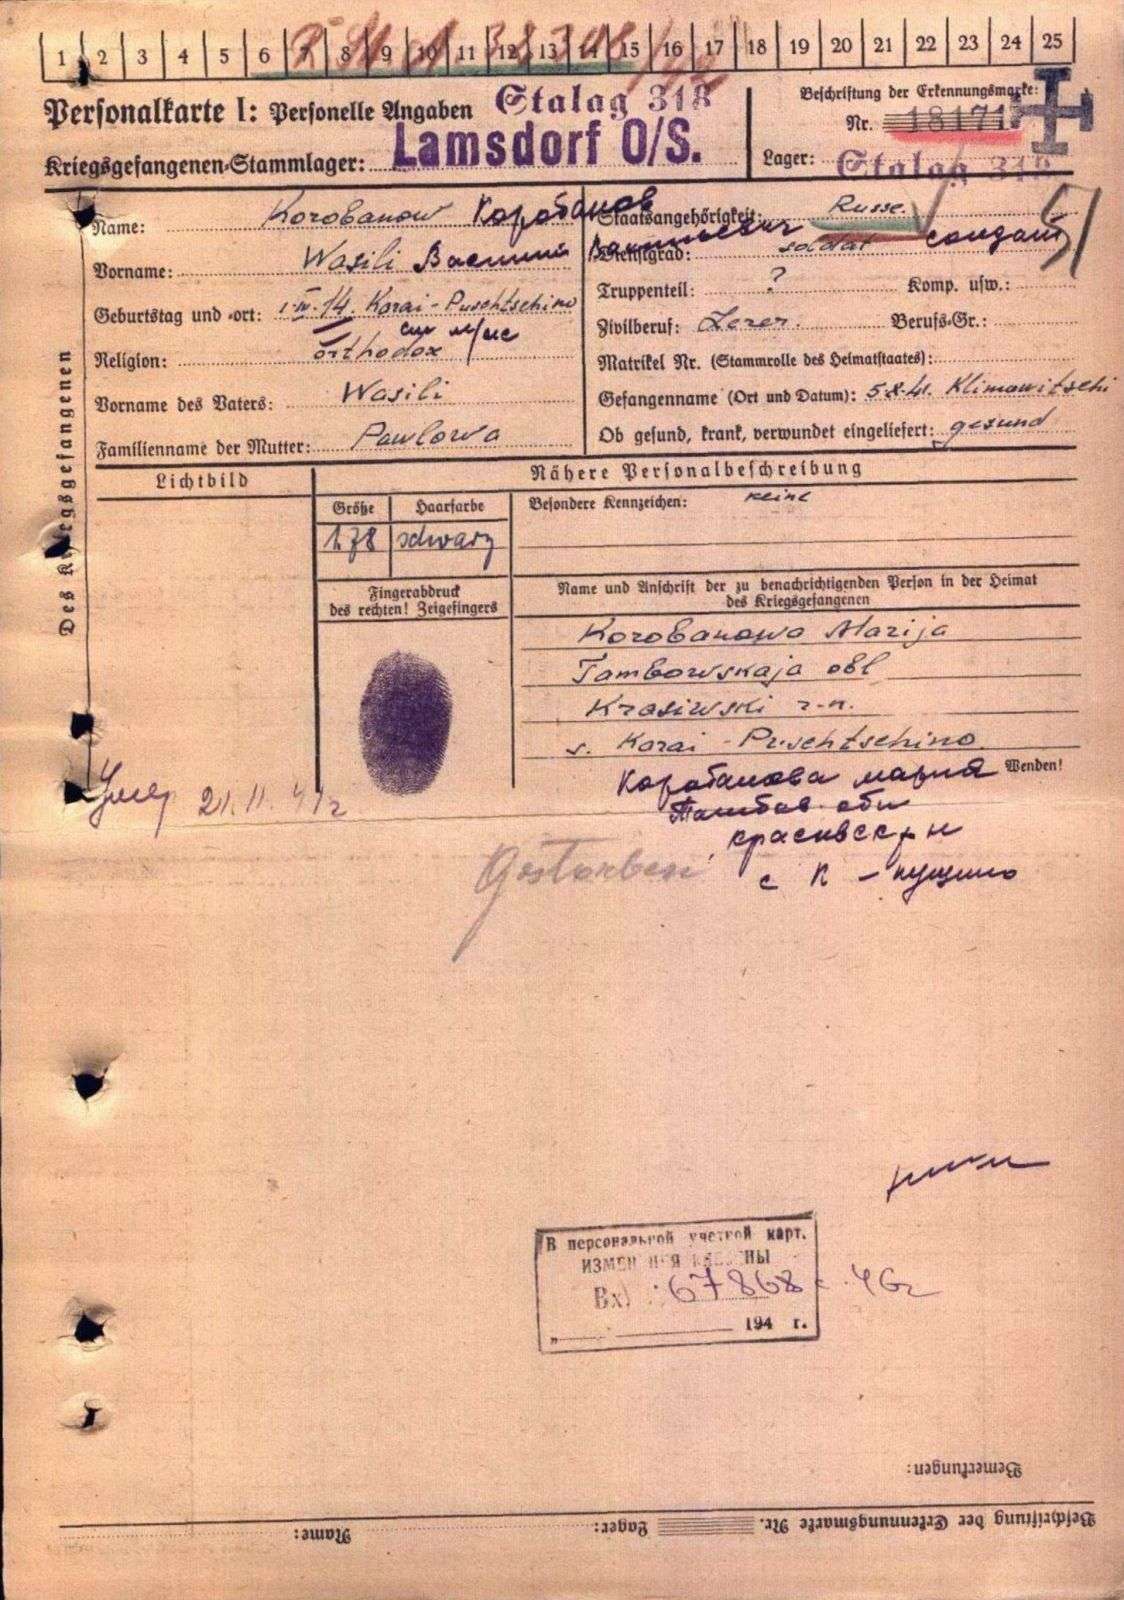 1 2 3 4 5 6 7 8 9 10 11 12 13 14 15 16 17 18 19 20 21 22 23 24 25
Personalkarte I: Personelle Angaben
Stalag 318
Beschriftung der Erkennungsmarke:
Kriegsgefangenen-Stammlager: Lamsdorf O/S.
Nr. 18171
Lager: Stalag 318
Des Kriegsgefangenen
Name: Korobanow Коробанов
Vorname: Wasili Василий Васильевич
Geburtstag und -ort: 1.IV.14. Karai-Puschtschino
Religion: orthodox
Vorname des Vaters: Wasili
Familienname der Mutter: Pawlowa
Staatsangehörigkeit: Russe.
Dienstgrad: soldat солдат
Truppenteil: ? Komp. usw.:
Zivilberuf: Berufs-Gr.:
Matrikel Nr. (Stammrolle des Heimatstaates):
Gefangenname (Ort und Datum): 5.X.41. Klimowitschi
Ob gesund, krank, verwundet eingeliefert: gesund
Lichtbild
Nähere Personalbeschreibung
Größe Haarfarbe
1.78 schwarz
Besondere Kennzeichen: keine
Fingerabdruck
des rechten! Zeigefingers
Name und Anschrift der zu benachrichtigenden Person in der Heimat
des Kriegsgefangenen
Korobanowa Marija
Tambowskaja obl
Krasiwski r-n.
s. Karai-Puschtschino
Wenden!
Коробанова мария
Тамбов. обл
красивск рн
с К-пущино
Умер 21.11.41г
Gestorben
В персональной учетной карт.
ИЗМЕНЕНИЯ ВНЕСЕНЫ
Вх) 67868с 46г
„ 194 г.
Bemerkungen:
Beschriftung der Erkennungsmarke Nr. Lager: Name: